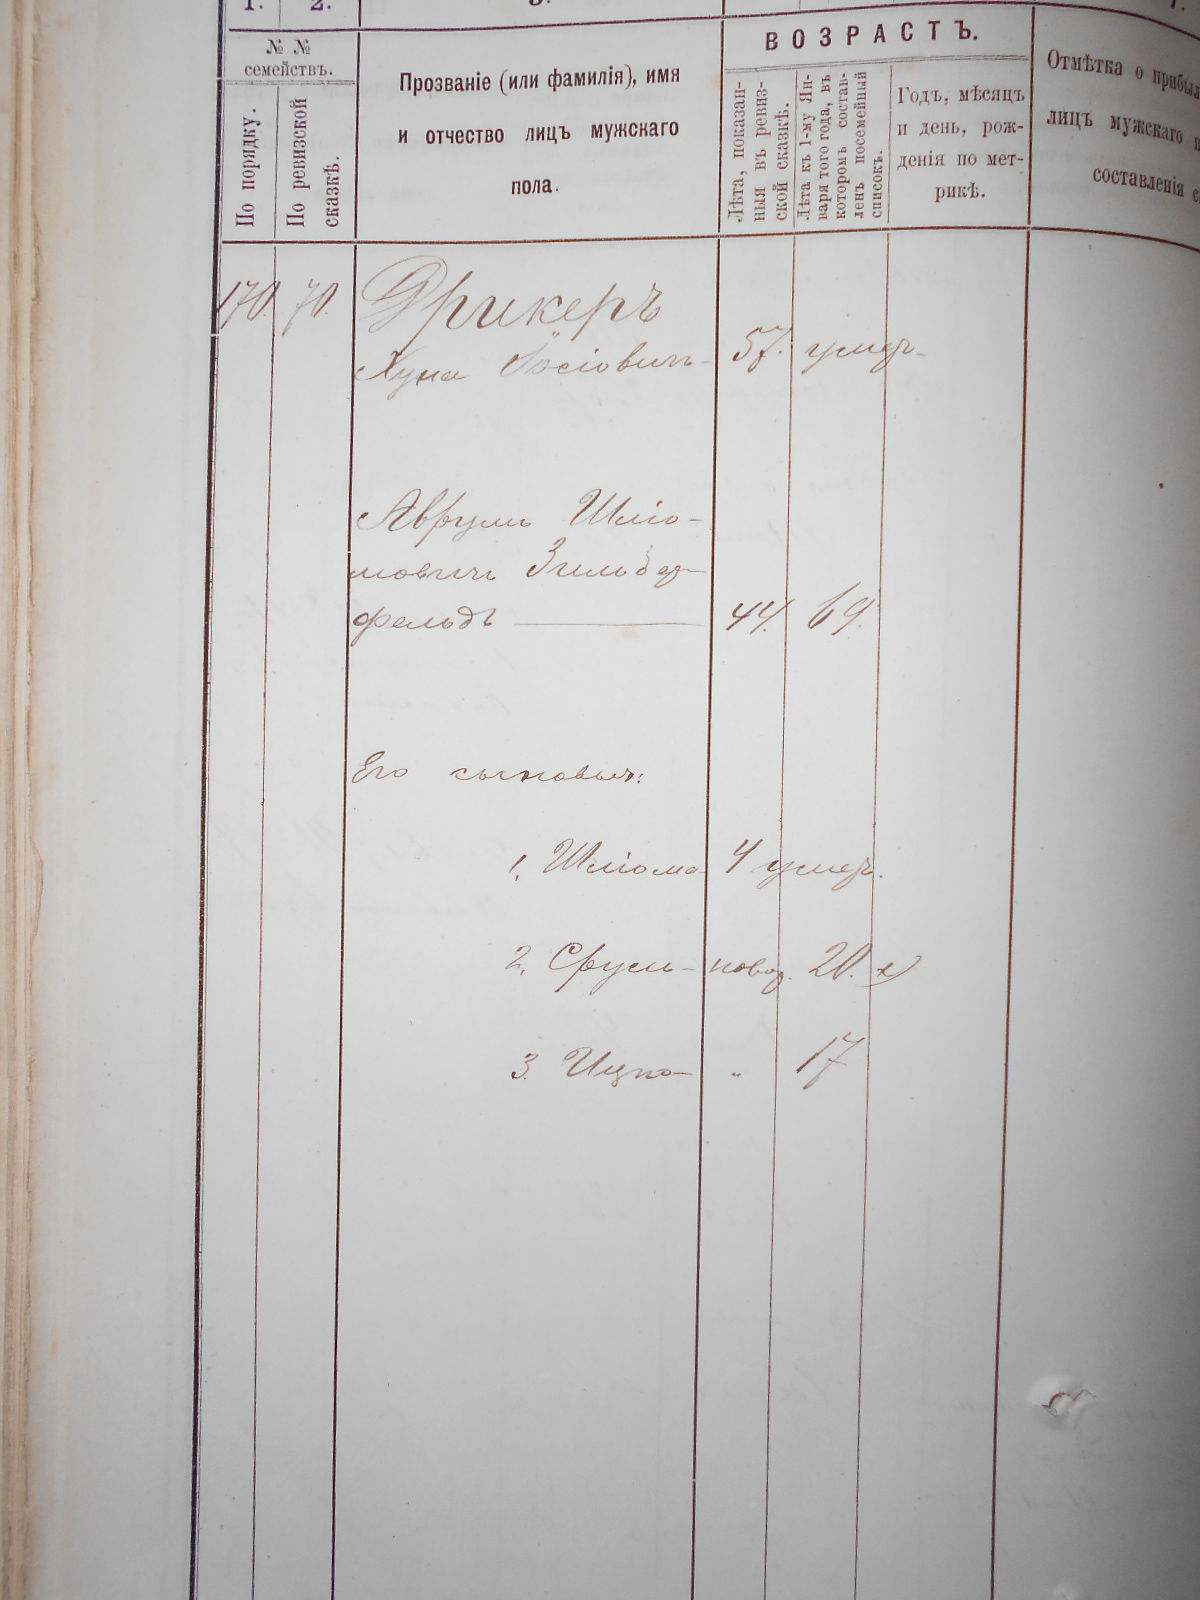 1. 2. 3. 7.
№ №
семействъ.
По порядку.
По ревизской
сказкѣ.
Прозваніе (или фамилія), имя
и отчество лицъ мужскаго
пола.
ВОЗРАСТЪ.
Лѣта, показан-
ныя въ ревиз-
ской сказкѣ.
Лѣта къ 1-му Ян-
варя того года, въ
которомъ состав-
ленъ посемейный
списокъ.
Годъ, мѣсяцъ
и день, рож-
денія по мет-
рикѣ.
Отмѣтка о
лицъ мужскаго
составленія
170. 70. Дрикеръ
Хуна Іосіовичъ 57. умеръ
Аврумъ Шліо-
мовичъ Зильбер-
фельдъ 44. 69.
Его сыновья:
1. Шліома 4 умеръ.
2. Срулъ - новор. 20. х)
3. Ицко - " 17